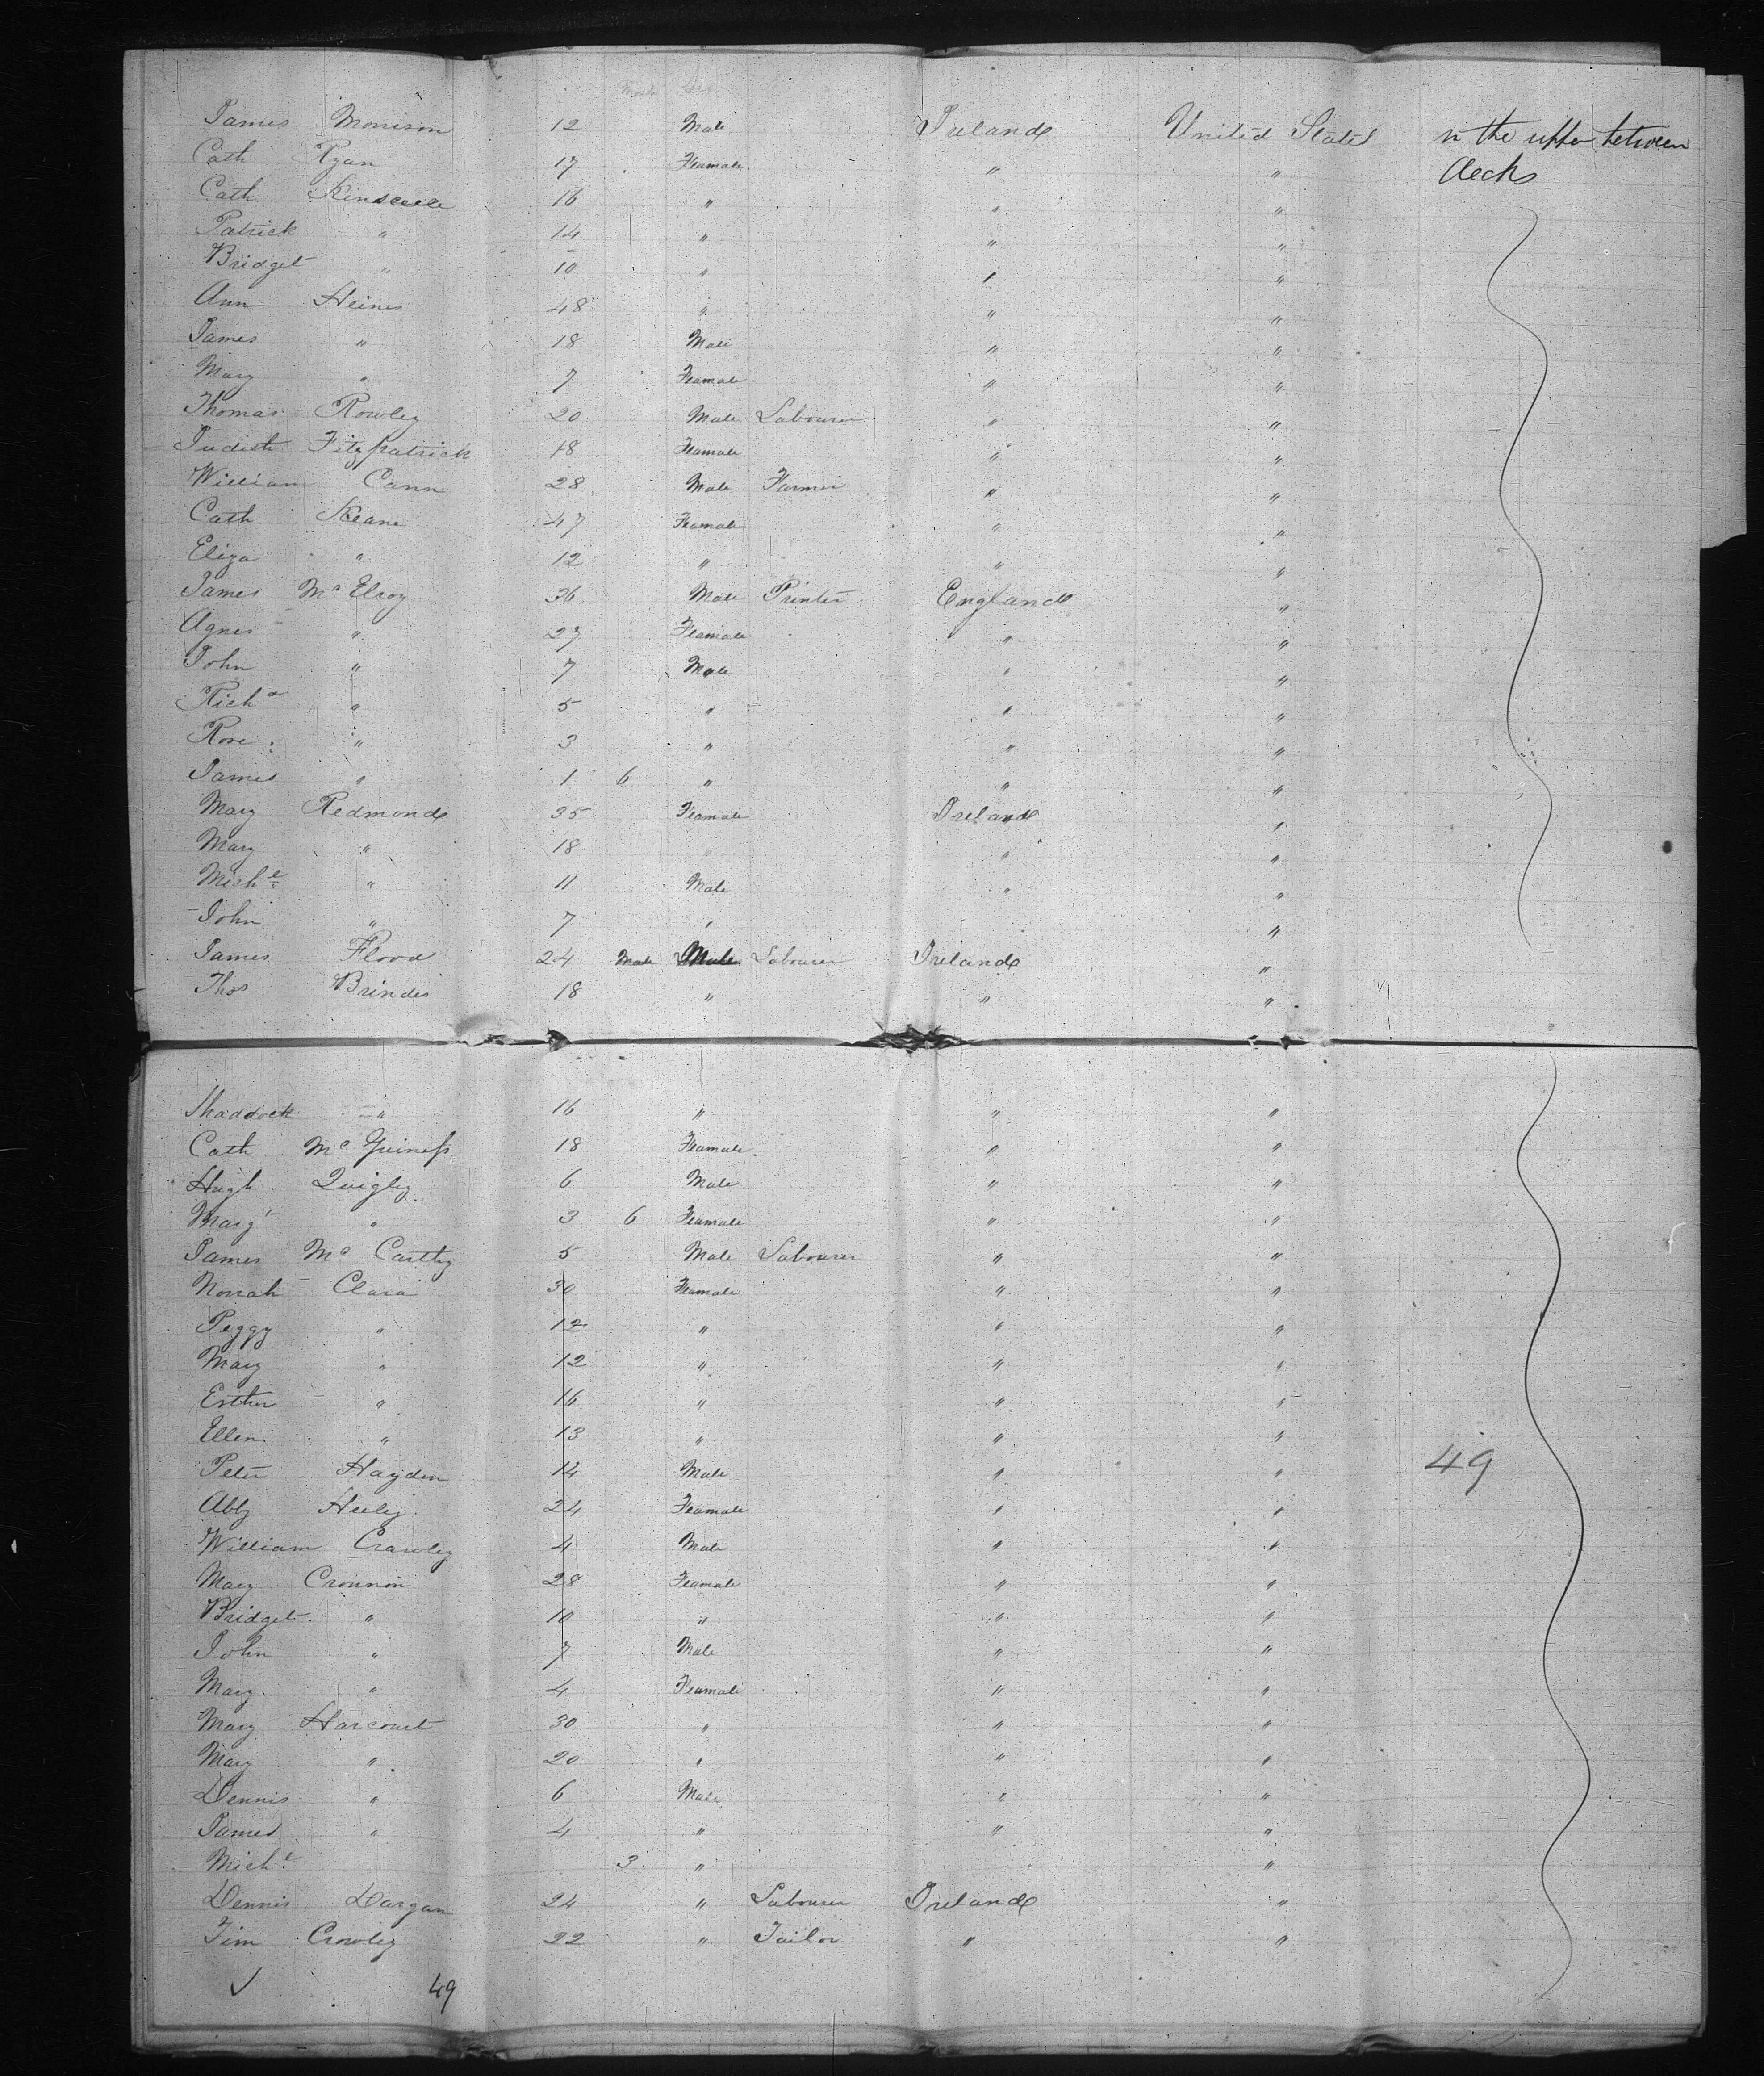 Months Sex
James Morrison 12 Male Ireland United States in the upper between
decks
Cath Ryan 17 Feamale " "
Cath 16 " " "
Patrick " 14 " " "
Bridget " 10 " " "
Ann Heines 48 " " "
James " 18 Male " "
Mary " 7 Feamale " "
Thomas Rowley 20 Male Labourer " "
Judith Fitzpatrick 18 Feamale " "
William Cann 28 Male Farmer " "
Cath Keane 47 Feamale " "
Eliza " 12 " " "
James Mc Elroy 36 Male Printer England "
Agnes " 27 Feamale " "
John " 7 Male " "
Richd " 5 " " "
Rose " 3 " " "
James " 1 6 " " "
Mary Redmond 35 Feamale Ireland "
Mary " 18 " " "
Michl " 11 Male " "
John " 7 " "
James Flood 24 Male Male Labourer Ireland "
Thos Brindes 18 " " "
Thaddock " 16 " " "
Cath Mc Guiness 18 Feamale " "
Hugh Quigley 6 Male " "
Margt " 3 6 Feamale " "
James Mc Carthy 5 Male Labourer " "
Norah Clara 30 Feamale " "
Peggy " 12 " " "
Mary " 12 " " "
Esther " 16 " " "
Ellen " 13 " " "
Peter Hayden 14 Male " " 49
Abby Heeley 24 Feamale " "
William Crawley 4 Male " "
Mary Cronnon 28 Feamale " "
Bridget " 10 " " "
John " 7 Male " "
Mary " 4 Feamale " "
Mary Harcourt 30 " " "
Mary " 20 " " "
Dennis " 6 Male " "
James " 4 " " "
Michl 3 " "
Dennis Dargan 24 " Labourer Ireland "
Tim Crowley 22 " Tailor " "
49